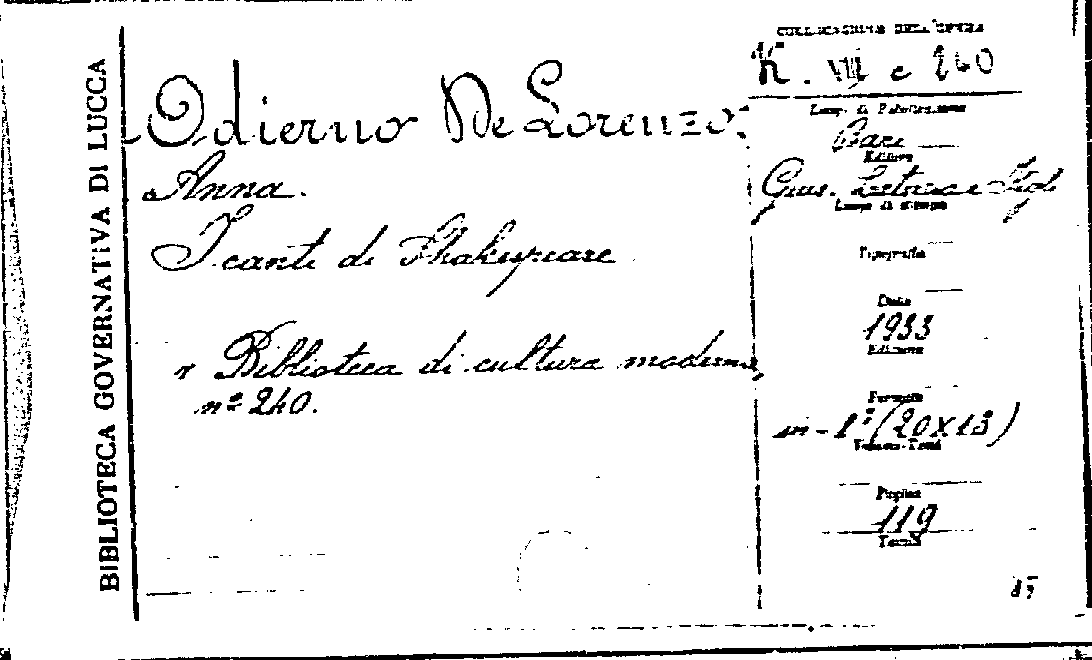 BIBLIOTECA GOVERNATIVA DI LUCCA
Odierno De Lorenzo
Anna.
I canti di Shakespeare
Biblioteca di cultura moderna,
nº 240.
COLLOCAZIONE DELL'OPERA
K. VIII c 240
Luogo di Pubblicazione
Bari
Editore
Gius. Laterza e Figli
Luogo di stampa
Tipografia
Data
1933
Edizione
Formato
in-1º (20x13)
Volume-Tomi
Pagine
119